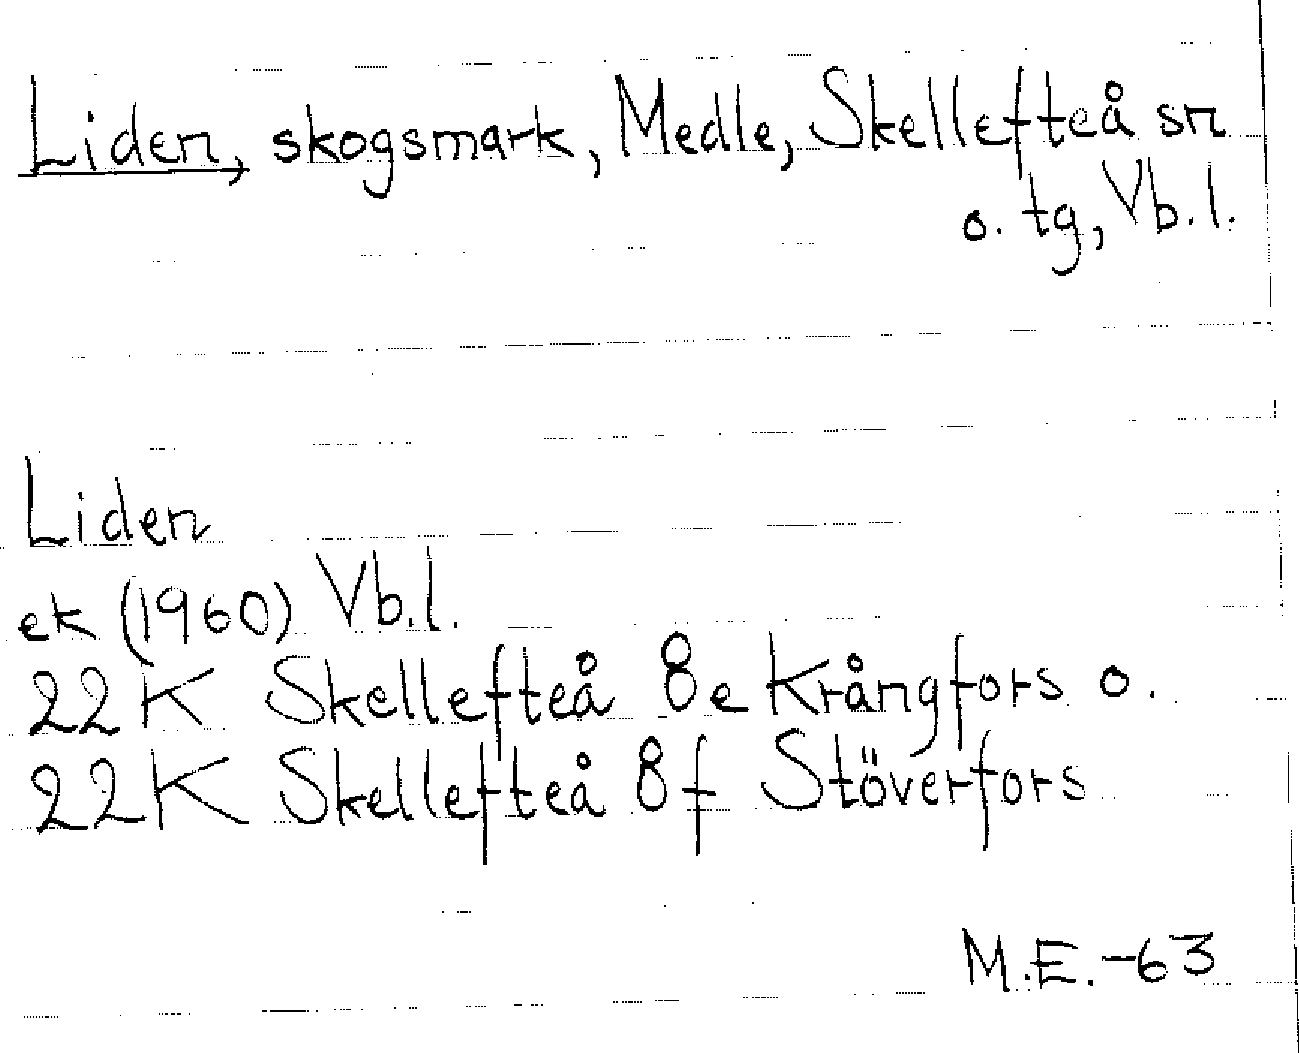 Liden, skogsmark, Medle, Skellefteå sn
o. tg, Vb.l.
Liden
ek (1960) Vb.l.
22K Skellefteå 8e Krångfors o.
22K Skellefteå 8f Stöverfors
M.E.-63